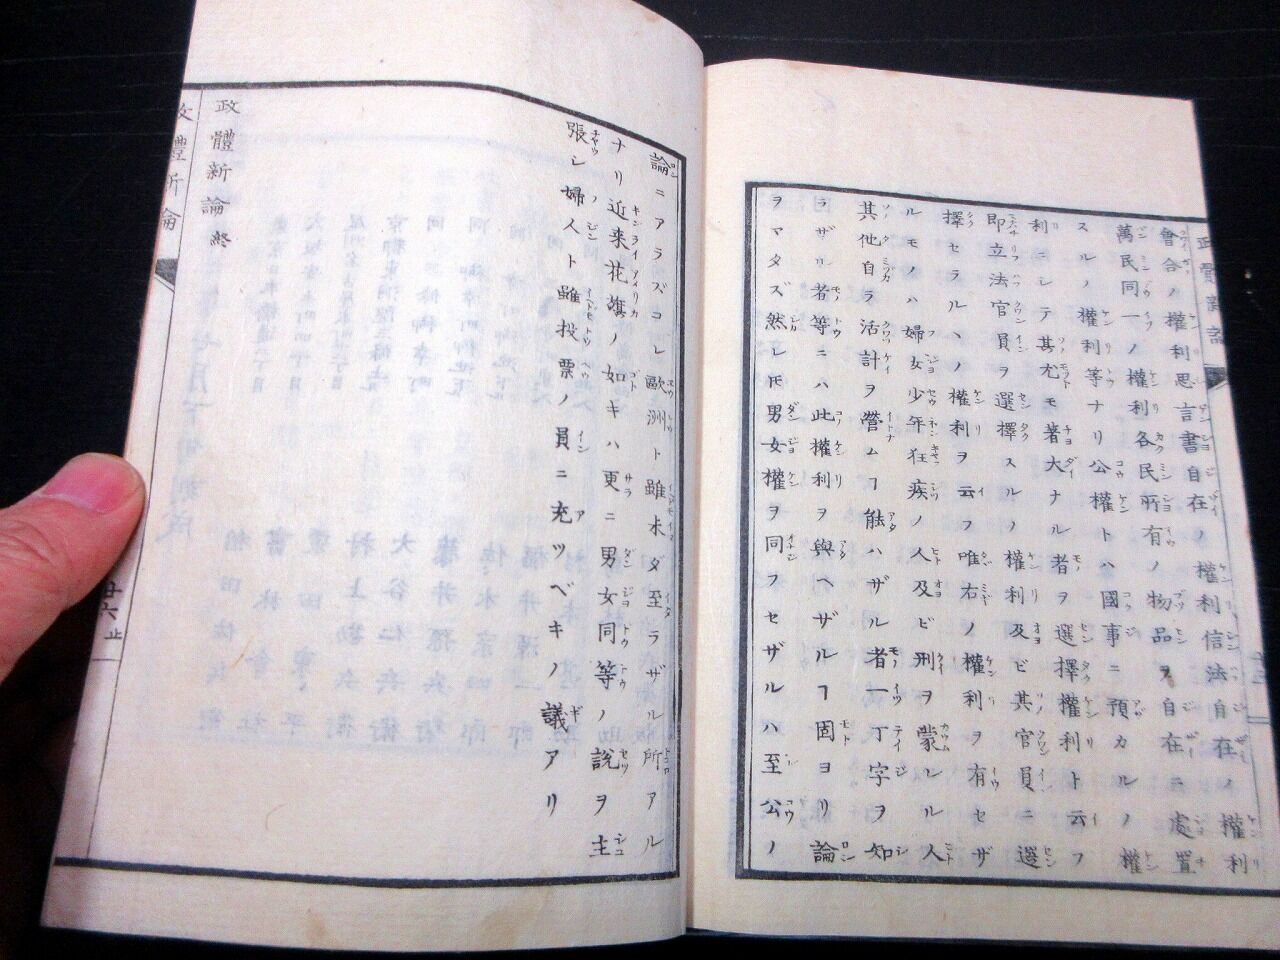 會合ノ權利思言書自在ノ權利信法自在ノ權利
萬民同一ノ權利各民所有ノ物品ヲ自在ニ處置
スルノ權利等ナリ公權トハ國事ニ預カルノ權
利ニシテ其尤モ著大ナル者ヲ選擇權利ト云フ
即立法官員ヲ選擇スルノ權利及ビ其官員ニ選
擇セラルヽノ權利ヲ云フ唯右ノ權利ヲ有セザ
ルモノハ婦女少年狂疾ノ人及ビ刑ヲ蒙レル人
其他自ラ活計ヲ營ムヿ能ハザル者一丁字ヲ知
ラザル者等ニハ此權利ヲ與ヘザルヿ固ヨリ論
ヲマタズ然レ𪜈男女權ヲ同フセザルハ至公ノ
論ニアラズコレ歐洲ト雖未ダ至ラザル所アル
ナリ近来花旗ノ如キハ更ニ男女同等ノ說ヲ主
張シ婦人ト雖投票ノ員ニ充ツベキノ議アリ
政體新論終
政體新論
廿六
止